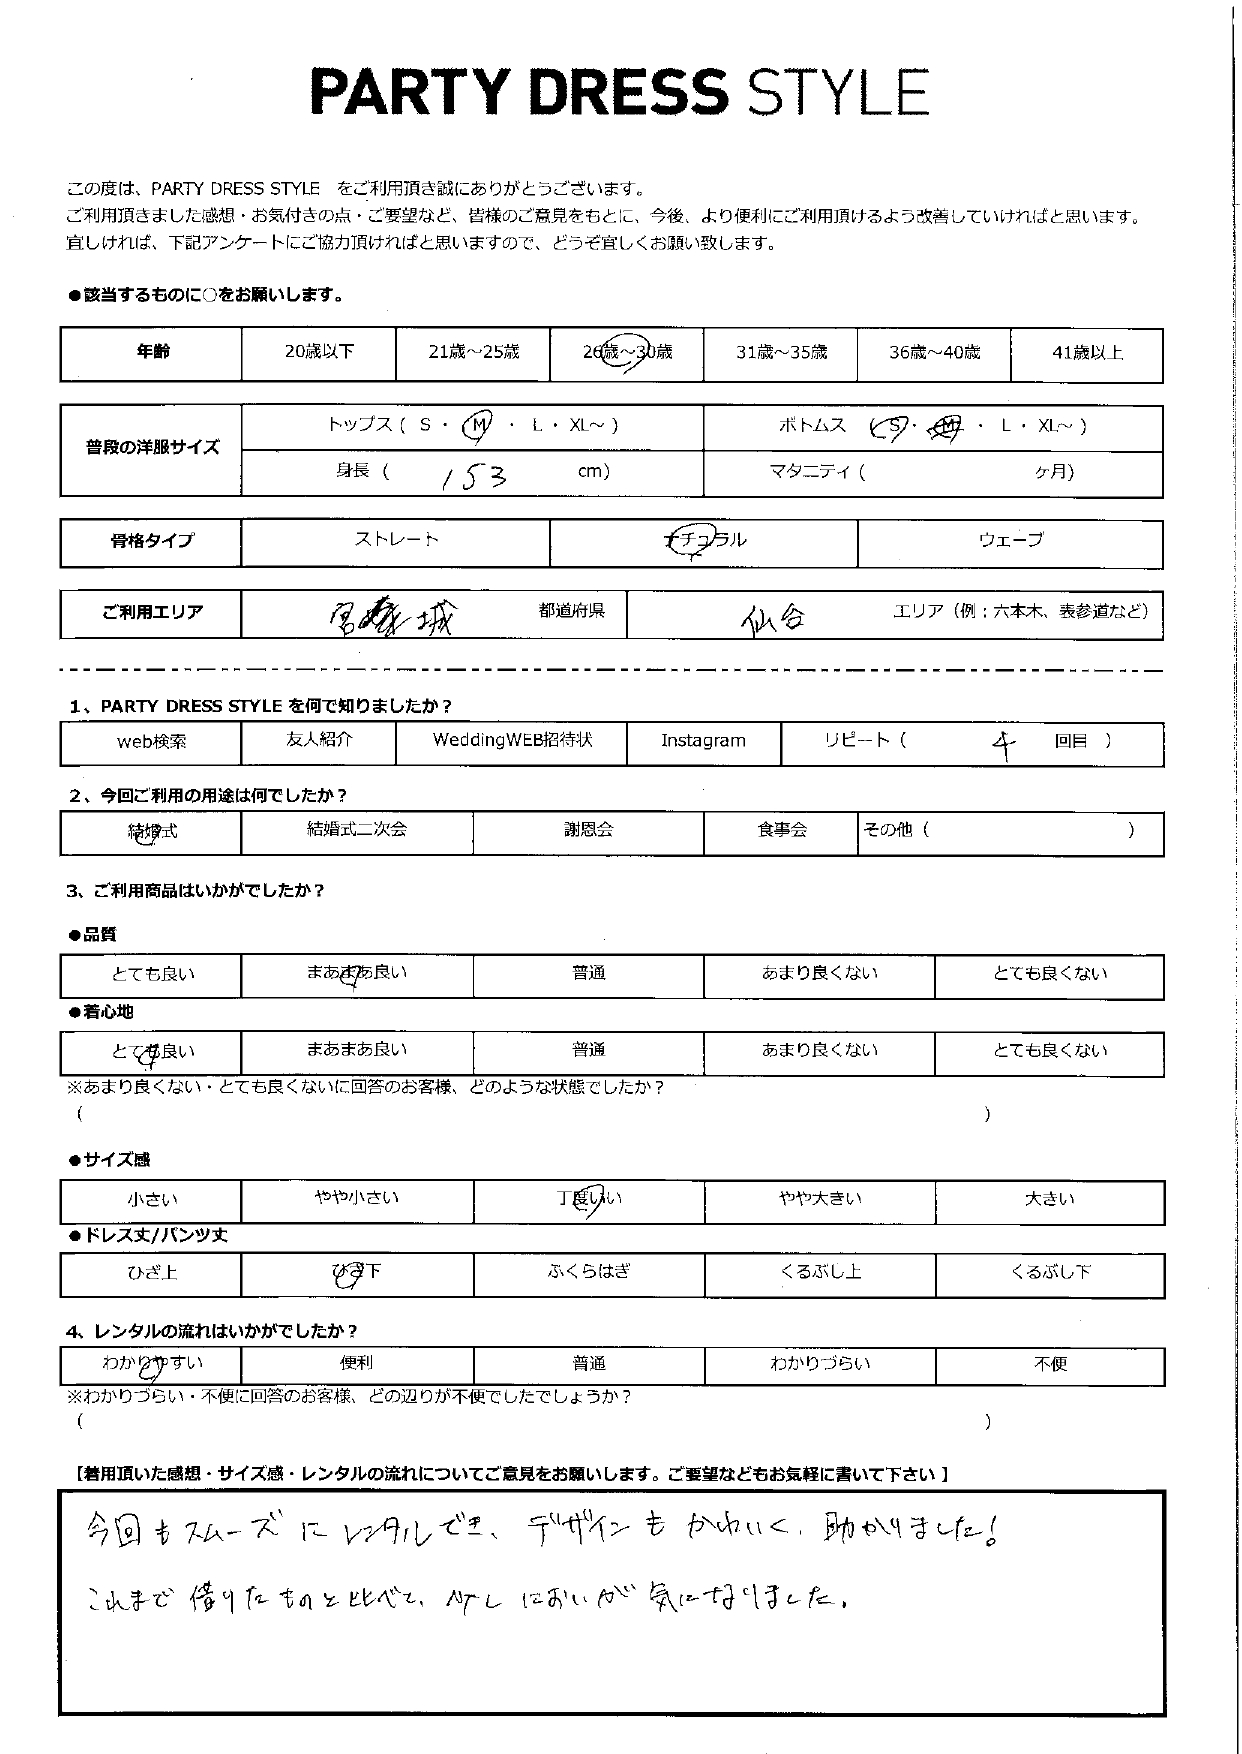 PARTY DRESS STYLE
この度は、PARTY DRESS STYLE をご利用頂き誠にありがとうございます。
ご利用頂きました感想・お気付きの点・ご要望など、皆様のご意見をもとに、今後、より便利にご利用頂けるよう改善していければと思います。
宜しければ、下記アンケートにご協力頂ければと思いますので、どうぞ宜しくお願い致します。
●該当するものに○をお願いします。
年齢 20歳以下 21歳～25歳 26歳～30歳 31歳～35歳 36歳～40歳 41歳以上
普段の洋服サイズ トップス ( S ・ M ・ L ・ XL～ ) ボトムス ( S ・ M ・ L ・ XL～ )
身長 ( 153 cm) マタニティ ( ケ月)
骨格タイプ ストレート ナチュラル ウェーブ
ご利用エリア 宮城 都道府県 仙台 エリア（例；六本木、表参道など）
1、PARTY DRESS STYLE を何で知りましたか？
web検索 友人紹介 WeddingWEB招待状 Instagram リピート ( 4 回目 )
2、今回ご利用の用途は何でしたか？
結婚式 結婚式二次会 謝恩会 食事会 その他 ( )
3、ご利用商品はいかがでしたか？
●品質
とても良い まあまあ良い 普通 あまり良くない とても良くない
●着心地
とても良い まあまあ良い 普通 あまり良くない とても良くない
※あまり良くない・とても良くないに回答のお客様、どのような状態でしたか？
( )
●サイズ感
小さい やや小さい 丁度いい やや大きい 大きい
●ドレス丈/パンツ丈
ひざ上 ひざ下 ふくらはぎ くるぶし上 くるぶし下
4、レンタルの流れはいかがでしたか？
わかりやすい 便利 普通 わかりづらい 不便
※わかりづらい・不便に回答のお客様、どの辺りが不便でしたでしょうか？
( )
【着用頂いた感想・サイズ感・レンタルの流れについてご意見をお願いします。ご要望などもお気軽に書いて下さい 】
今回もスムーズにレンタルでき、デザインもかわいく、助かりました！
これまで借りたものと比べて、少し においが気になりました。